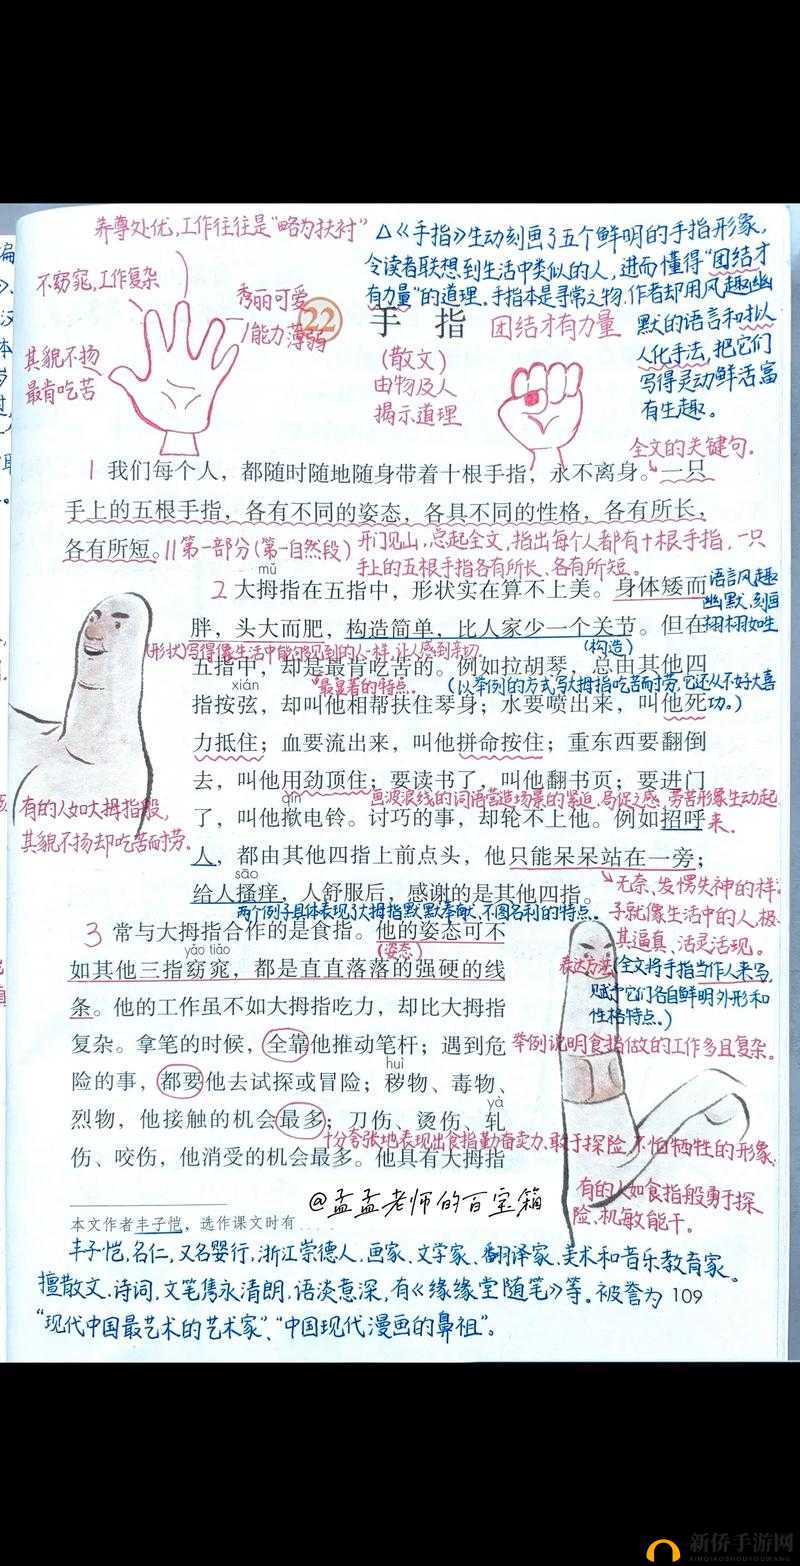 养尊处优,工作往往是“略为扶衬”
不窈窕,工作复杂
秀丽可爱
能力薄弱
其貌不扬
最肯吃苦
△《手指》生动刻画了五个鲜明的手指形象,
令读者联想到生活中类似的人,进而懂得“团结才
有力量”的道理。手指本是寻常之物,作者却用风趣幽
默的语言和拟人
人化手法,把它们
写得灵动鲜活富
有生趣。
22 手指 团结才有力量
(散文)
由物及人
揭示道理
全文的关键句.
1 我们每个人,都随时随地随身带着十根手指,永不离身。一只
手上的五根手指,各有不同的姿态,各具不同的性格,各有所长,
各有所短。
||第一部分(第一自然段) 开门见山,总起全文,指出每个人都有十根手指,一只
手上的五根手指各有所长、各有所短。
mǔ
2 大拇指在五指中,形状实在算不上美。身体矮而
语言风趣
幽默,刻画
栩栩如生
胖,头大而肥,构造简单,比人家少一个关节。但在
(形状)写得像生活中能够见到的人一样,让人感到亲切.
(构造)
五指中,却是最肯吃苦的。例如拉胡琴,总由其他四
xián
最显著的特点.
(以举例的方式写大拇指吃苦而耐劳,它还从不好大喜
功。)
指按弦,却叫他相帮扶住琴身;水要喷出来,叫他死
力抵住;血要流出来,叫他拼命按住;重东西要翻倒
去,叫他用劲顶住;要读书了,叫他翻书页;要进门
qìn
画波浪线的词语营造场景的紧迫、局促之感,劳苦形象生动起
来.
了,叫他揿电铃。讨巧的事,却轮不上他。例如招呼
人,都由其他四指上前点头,他只能呆呆站在一旁;
sāo
给人搔痒,人舒服后,感谢的是其他四指。
两个例子具体表现了大拇指默默奉献、不图名利的特点.
无奈、发愣失神的样
子就像生活中的人,极
其逼真、活灵活现。
有的人如大拇指般,
其貌不扬却吃苦耐劳.
3 常与大拇指合作的是食指。他的姿态可不
yáo tiǎo
(姿态)
如其他三指窈窕,都是直直落落的强硬的线
条。他的工作虽不如大拇指吃力,却比大拇指
复杂。拿笔的时候,全靠他推动笔杆;遇到危
huì
险的事,都要他去试探或冒险;秽物、毒物、
yà
烈物,他接触的机会最多;刀伤、烫伤、轧
伤、咬伤,他消受的机会最多。他具有大拇指
表达方法(全文将手指当作人来写,
赋予它们各自鲜明外形和
性格特点。)
举例说明食指做的工作多且复杂。
十分夸张地表现出食指勤奋卖力、敢于探险、不怕牺牲的形象.
有的人如食指般勇于探
险、机敏能干。
@孟孟老师的百宝箱
本文作者丰子恺,选作课文时有....
丰子恺,名仁,又名婴行,浙江崇德人,画家、文学家、翻译家、美术和音乐教育家。
擅散文、诗词,文笔隽永清朗,语淡意深,有《缘缘堂随笔》等。被誉为
“现代中国最艺术的艺术家”、“中国现代漫画的鼻祖”。
109
新侨手游网
XINQIAOSHOUYOUWANG